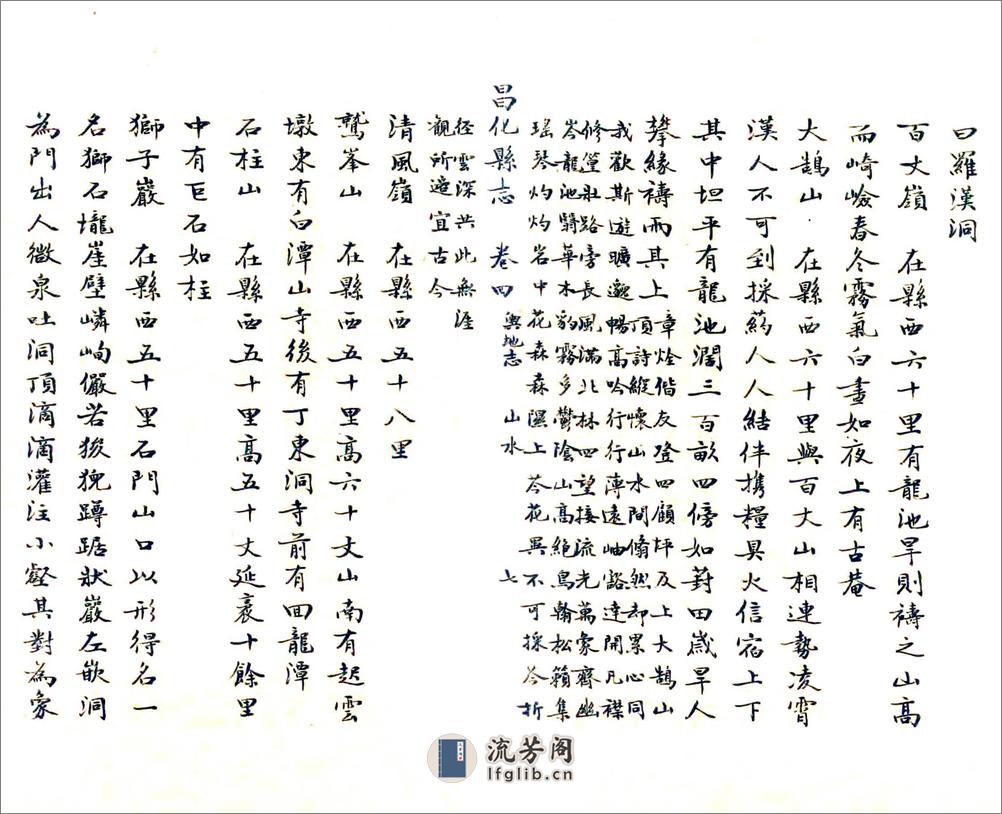 曰羅漢洞
百丈嶺 在縣西六十里有龍池旱則禱之山高
而崎嶮春冬霧氣白晝如夜上有古菴
大鵠山 在縣西六十里與百大山相連勢凌霄
漢人不可到採葯人人結伴携糧具火信宿上下
其中坦平有龍池濶三百畝四傍如葑田歲旱人
攀緣禱雨其上 章烇偕友登四顧坪反上大鵠山
頂詩縱懷山水間翛然却累心同
我歡斯遊曠邈暢高吟行行溥遠岫谿達開凡襟
修篁壯路旁長風滿北林四望接流光萬象齊幽
岑龍池將華木豹霧多鬱陰山高絶鳥翰松籟集
瑶琴灼灼岩中花森森隰上芩花異不可採芩折
昌化縣志 卷四 輿地志 山水 七
径雲深共此無涯
觀所適宜古今
清風嶺 在縣西五十八里
鷲峯山 在縣西五十里高六十丈山南有起雲
墩東有白潭山寺後有丁東洞寺前有回龍潭
石柱山 在縣西五十里高五十丈延袤十餘里
中有巨石如柱
獅子巖 在縣西五十里石門山口以形得名一
名獅石壠崖壁嶙峋儼若狻猊蹲踞狀巖左嵌洞
為門出人微泉吐洞頂滴滴灌注小壑其對為象
流芳阁
lfglib.cn